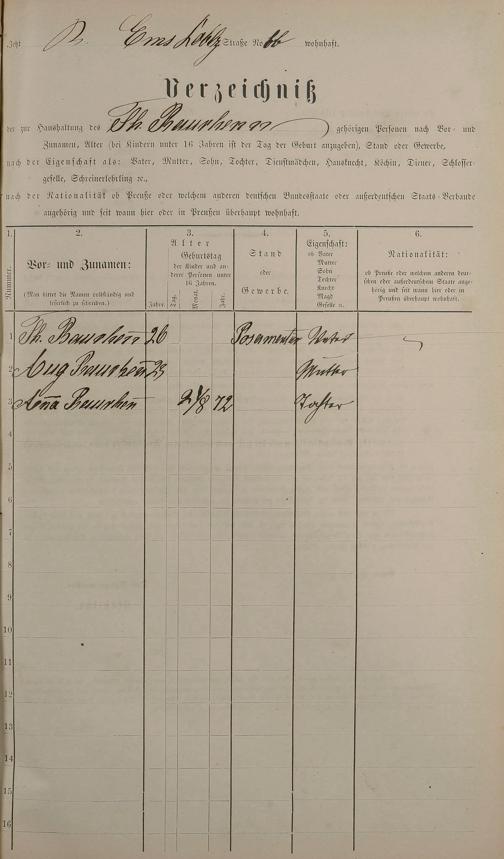 Jetzt Ems Coblz Straße No 66 wohnhaft.
Verzeichniß
der zur Haushaltung des Th. Bauschen gehörigen Personen nach Vor- und
Zunamen, Alter (bei Kindern unter 16 Jahren ist der Tag der Geburt anzugeben), Stand oder Gewerbe,
nach der Eigenschaft als: Vater, Mutter, Sohn, Tochter, Dienstmädchen, Hausknecht, Köchin, Diener, Schlosser-
geselle, Schreinerlehrling ꝛc.,
nach der Nationalität ob Preuße oder welchem anderen deutschen Bundesstaate oder außerdeutschen Staats-Verbande
angehörig und seit wann hier oder in Preußen überhaupt wohnhaft.
1. 2. 3. 4. 5. 6.
Nummer.
Vor- und Zunamen:
(Man bittet die Namen vollständig und
leserlich zu schreiben.)
Alter
Geburtstag
der Kinder und an-
derer Personen unter
16 Jahren.
Jahre. Tag. Monat. Jahr.
Stand
oder
Gewerbe.
Eigenschaft:
ob Vater
Mutter
Sohn
Tochter
Knecht
Magd
Geselle ꝛc.
Nationalität:
ob Preuße oder welchem anderen deut-
schen oder außerdeutschen Staate ange-
hörig und seit wann hier oder in
Preußen überhaupt wohnhaft.
1 Th. Bauschen 26 Posamentier Vater
2 Aug Bauschen 23 Mutter
3 Anna Bauschen 2 1/8 72 Tochter
4
5
6
7
8
9
10
11
12
13
14
15
16